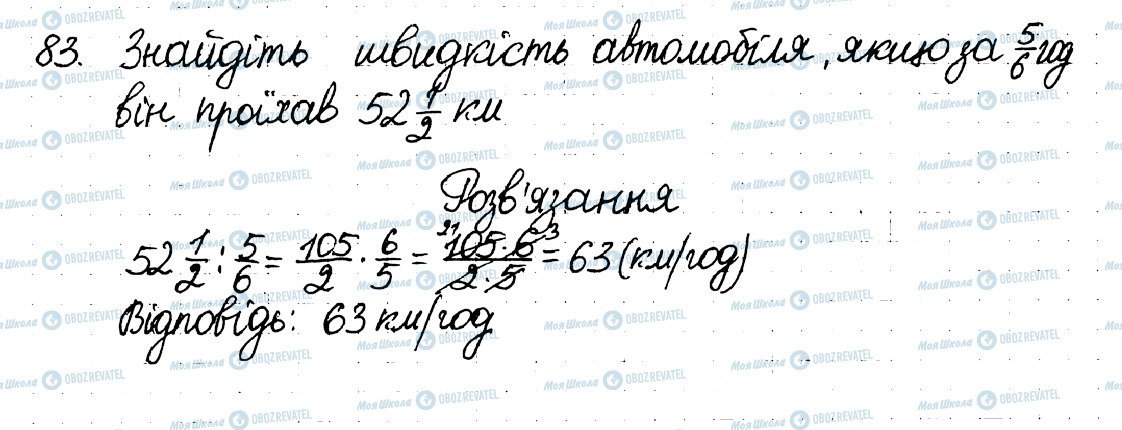 83. Знайдіть швидкість автомобіля, якщо за 5/6 год
він проїхав 52 1/2 км
Розв'язання
52 1/2 : 5/6 = 105/2 · 6/5 = 105·6/2·5 = 63 (км/год)
Відповідь: 63 км/год